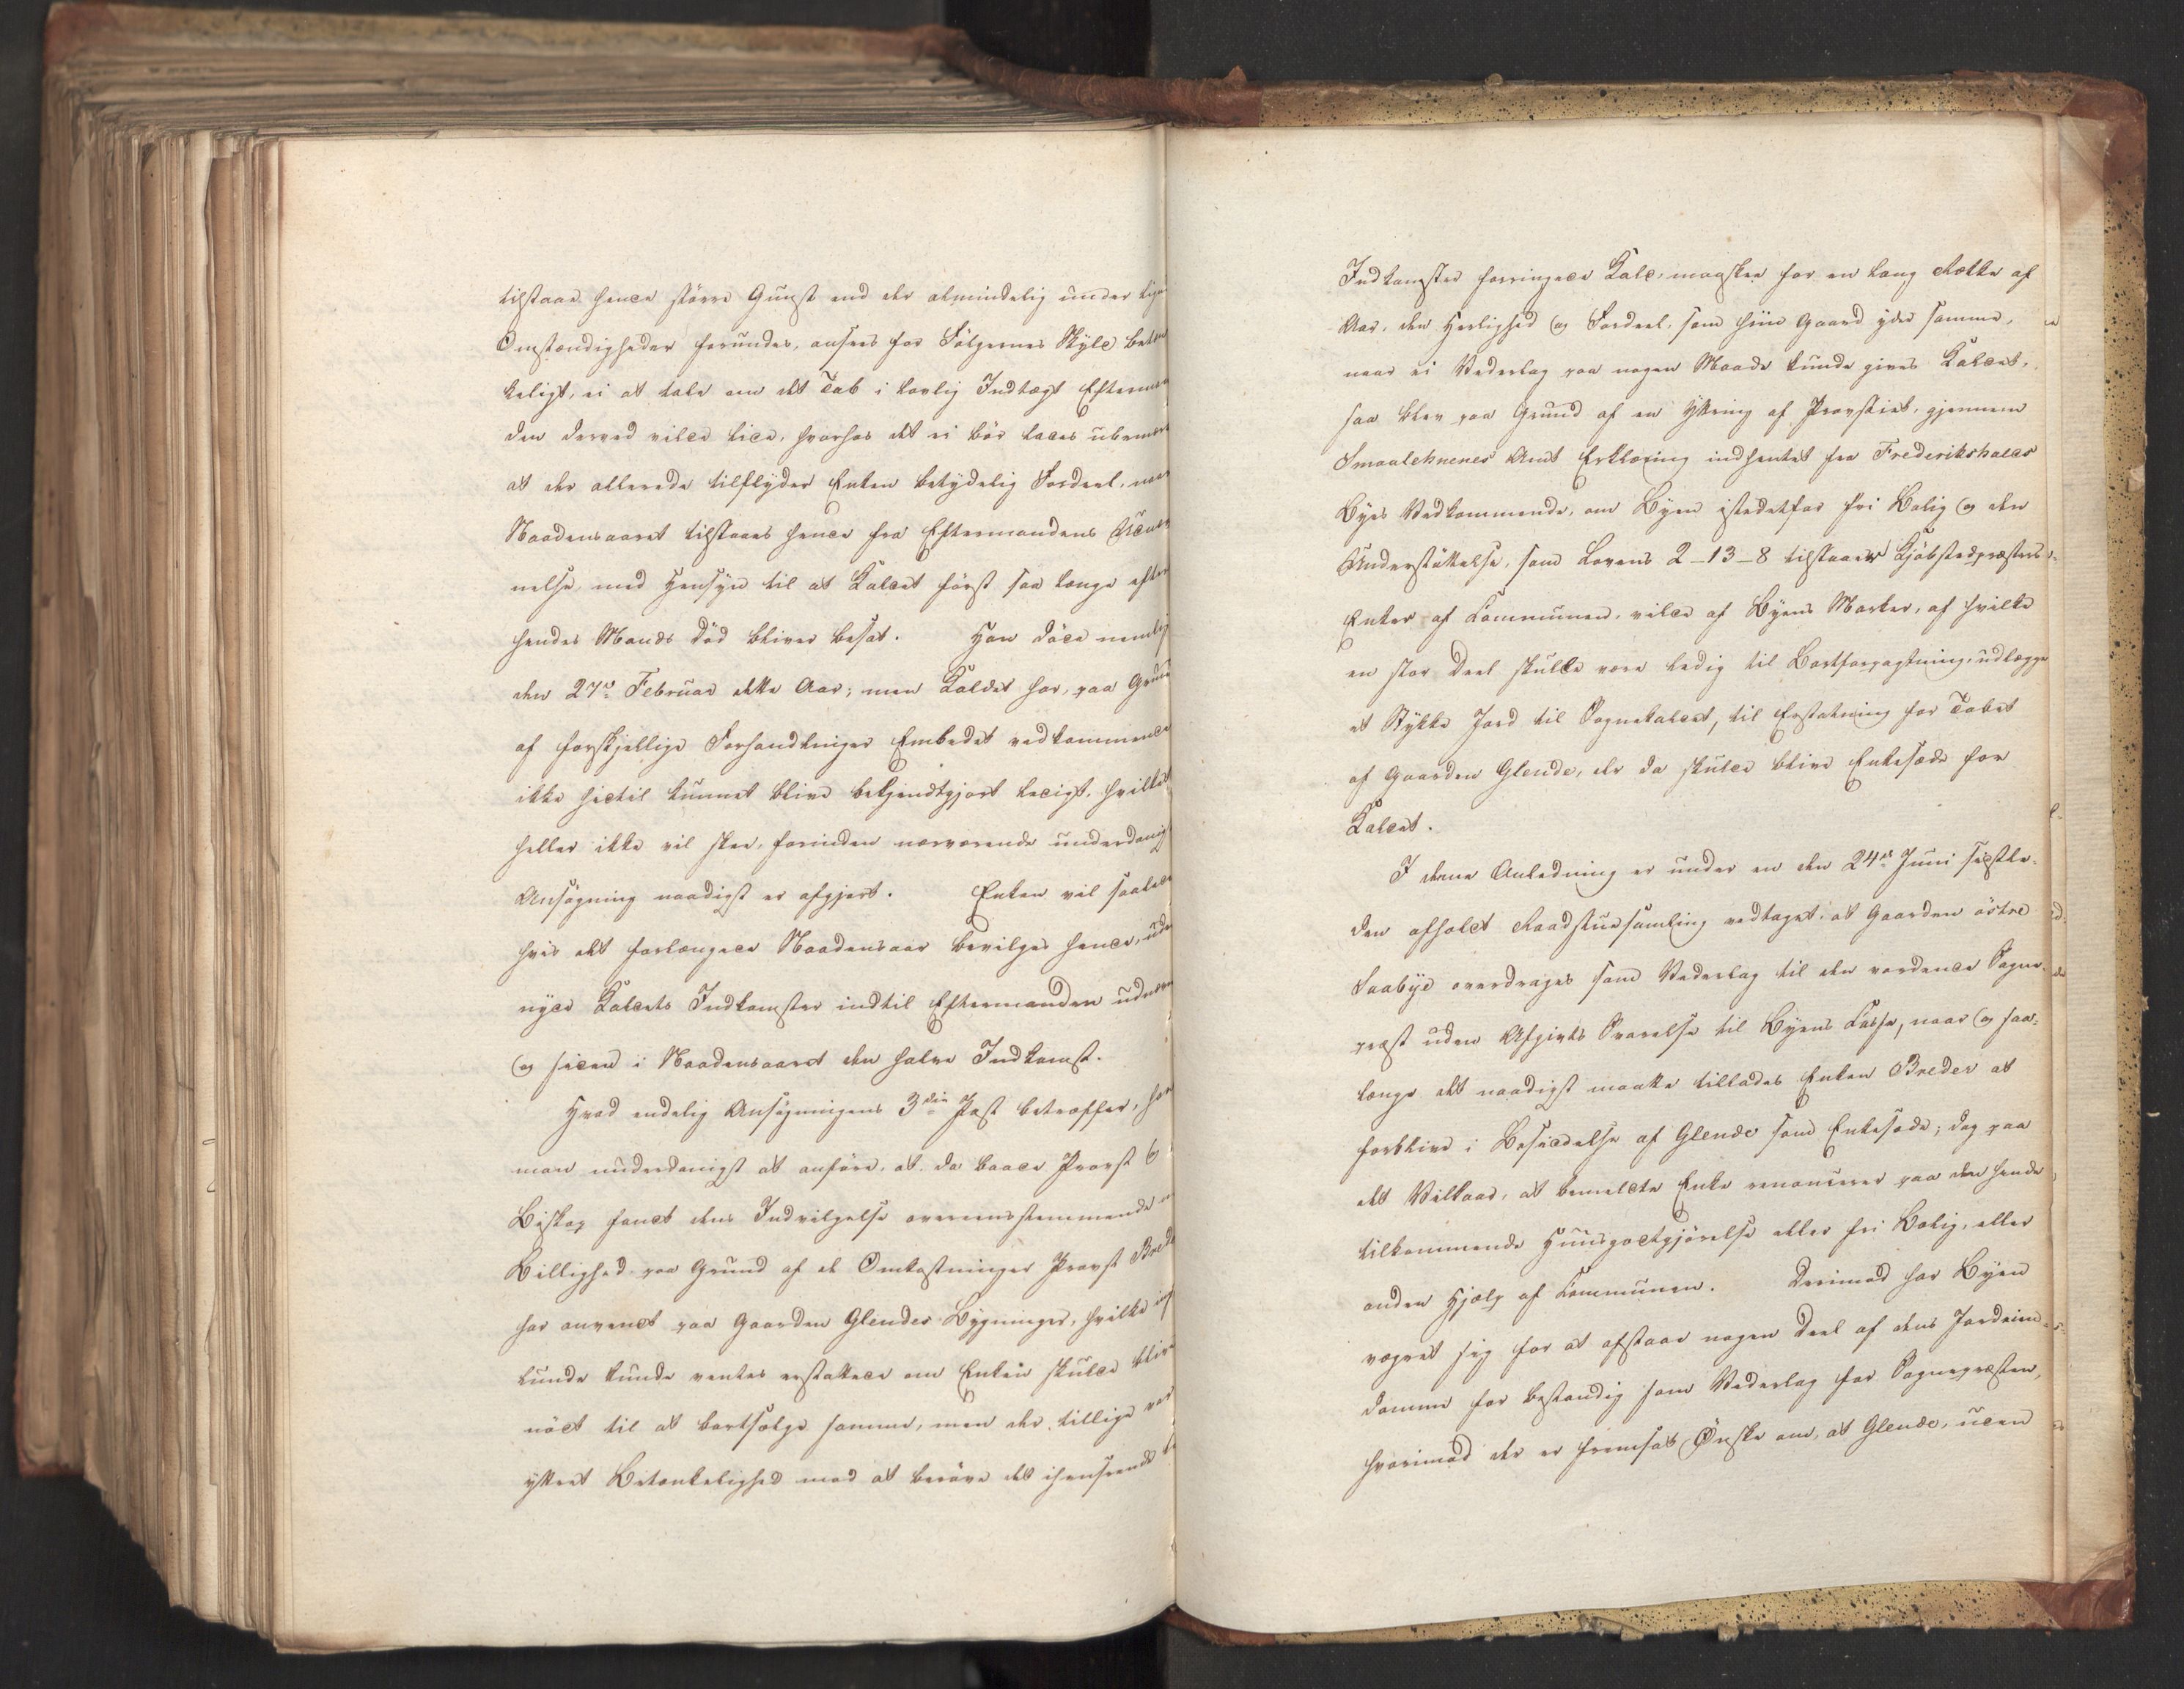 tilstaae hende större Gunst end der almindelig under lige
Omstændigheder forundes, ansees for Følgernes Skyld betæn
keligt, ei at tale om det Tab i lovlig Indtægt Efterman
den derved vilde lide, hvorhos det ei bör lades ubemærk
at der allerede tilflyder Enken betydelig Fordeel, naar
Naadensaaret tilstaaes hende fra Eftermandens Udnæv
nelse, med Hensyn til at Kaldet först saa længe efter
hendes Mands Död bliver besat. Han döde nemlig
den 27de Februar dette Aar; men Kaldet har, paa Grund
af forskjellige Forhandlinger Embedet vedkommende
ikke hidtil kunnet blive bekjendtgjort ledigt, hvilket
heller ikke vil skee, forinden nærværende underdanig
Ansögning naadigst er afgjort. Enken vil saaledes
hvis det forlængede Naadensaar bevilges hende,
nyde Kaldets Indkomster indtil Eftermanden udnævn
og siden i Naadensaaret den halve Indkomst.
Hvad endelig Ansögningens 3die Post betræffer, har
man underdanigst at anföre, at da baade Provst og
Biskop fandt dens Indvilgelse overeensstemmende m
Billighed paa Grund af de Omkostninger Provst Brede
har anvendt paa Gaarden Glendes Bygninger, hvilke
kunde ventes erstattede om Enken skulde blive
nödt til at bortsælge samme, men der tillige var
yttret Betænkelighed mod at beröve det ihenseende
Indkomster forringede Kald, maaskee for en lang Række af
Aar, den Herlighed og Fordeel, som hiin Gaard yder samme,
naar ei Vederlag paa nogen Maade kunde gives Kaldet,
saa blev paa Grund af en Yttring af Provstiet, gjennem
Smaalehnenes Amt Erklæring indhentet fra Frederikshalds
Byes Vedkommende, om Byen istedetfor fri Bolig og den
Understöttelse, som Lovens 2-13-8 tilstaaer Kjöbstedpræsters
Enker af Communen, vilde af Byens Marker, af hvilke
en stor Deel skulde være ledig til Bortforpagtning, udlægge
et Stykke Jord til Sognekaldet, til Erstatning for Tabet
af Gaarden Glende, der da skulde blive Enkesæde for
Kaldet.
I denne Anledning er under en den 24de Juni sidstle-
den afholdt Raadstuesamling vedtaget, at Gaarden östre
Saabye overdrages som Vederlag til den vordende Sogne-
præst uden Afgivts Svarelse til Byens Casse, naar og saa-
længe det naadigst maatte tillades Enken Breder at
forblive i Besiddelse af Glende som Enkesæde; dog paa
det Vilkaar, at bemeldte Enke renoncerer paa den hende
tilkommende Huusgodtgjörelse eller fri Bolig, eller
anden Hjælp af Communen. Derimod har Byen
vægret sig for at afstaae nogen Deel af dens Jordeien-
domme for bestandig som Vederlag for Sognepræsten,
hvorimod der er fremsat Önske om, at Glende, uden